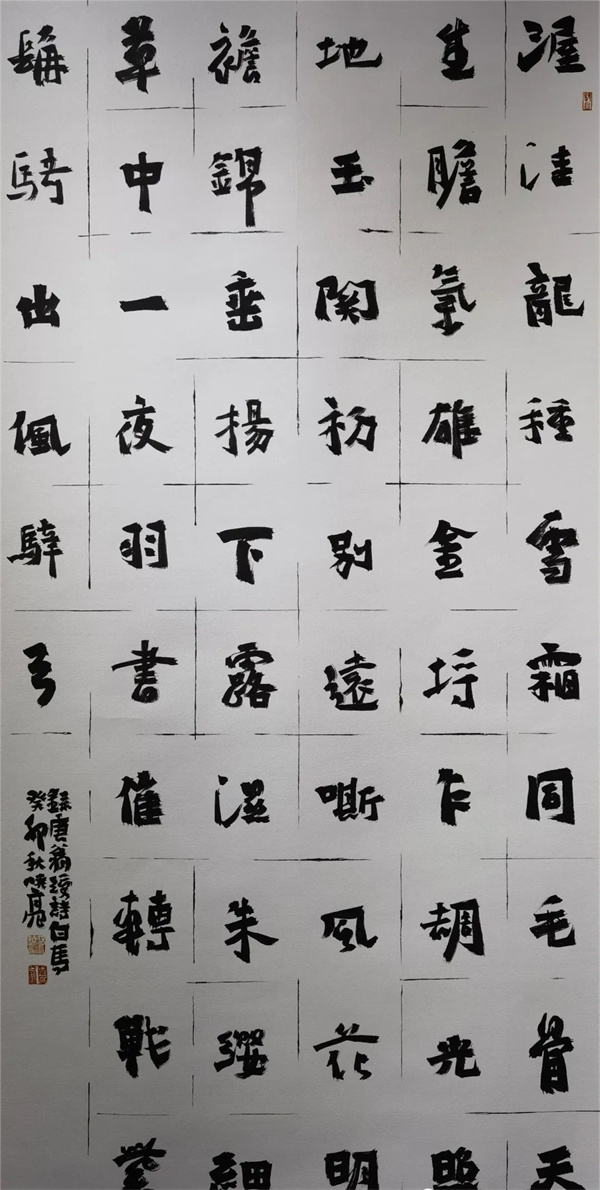 渥洼龍種雪霜同毛骨天
生膽氣雄金埒乍調光照
地玉關初別遠嘶風花明
襜錦垂揚下露濕朱纓細
草中一夜羽書催轉戰紫
髯騎出佩騂弓
錄唐翁綬詩白馬
癸卯秋映亮